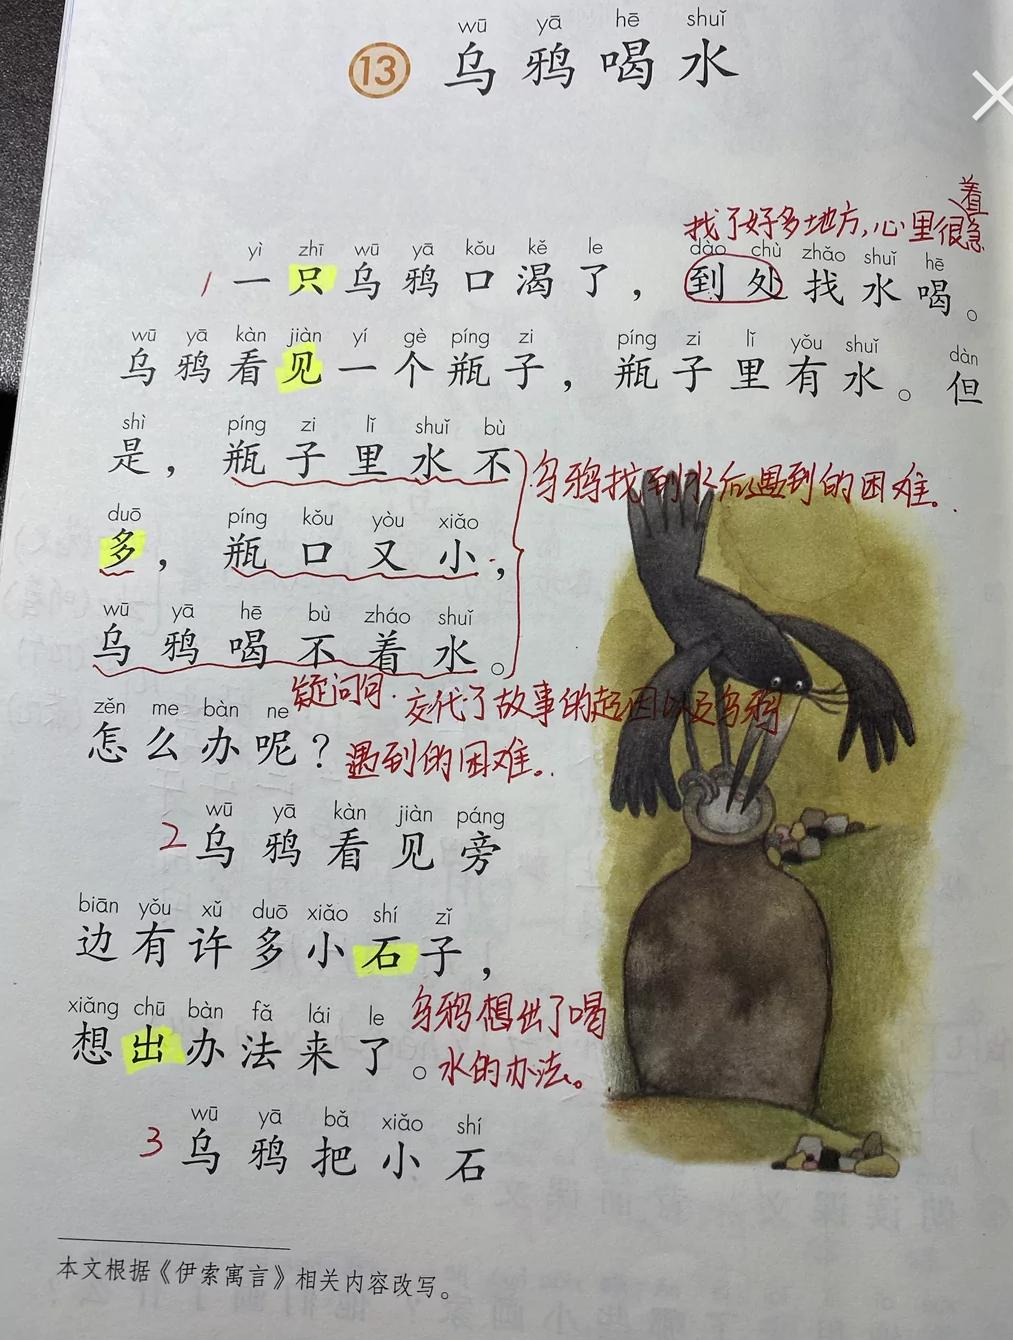 wū yā hē shuǐ
13 乌鸦喝水
着
找了好多地方,心里很急
yì zhī wū yā kǒu kě le dào chù zhǎo shuǐ hē
1 一只乌鸦口渴了，到处找水喝。
wū yā kàn jiàn yí gè píng zi píng zi lǐ yǒu shuǐ dàn
乌鸦看见一个瓶子，瓶子里有水。但
shì píng zi lǐ shuǐ bù
是，瓶子里水不
乌鸦找到水后遇到的困难.
duō píng kǒu yòu xiǎo
多，瓶口又小，
wū yā hē bù zháo shuǐ
乌鸦喝不着水。
疑问句.交代了故事的起因以及乌鸦
zěn me bàn ne
怎么办呢？
遇到的困难.
wū yā kàn jiàn páng
2 乌鸦看见旁
biān yǒu xǔ duō xiǎo shí zǐ
边有许多小石子，
xiǎng chū bàn fǎ lái le
想出办法来了。
乌鸦想出了喝
水的办法。
wū yā bǎ xiǎo shí
3 乌鸦把小石
本文根据《伊索寓言》相关内容改写。